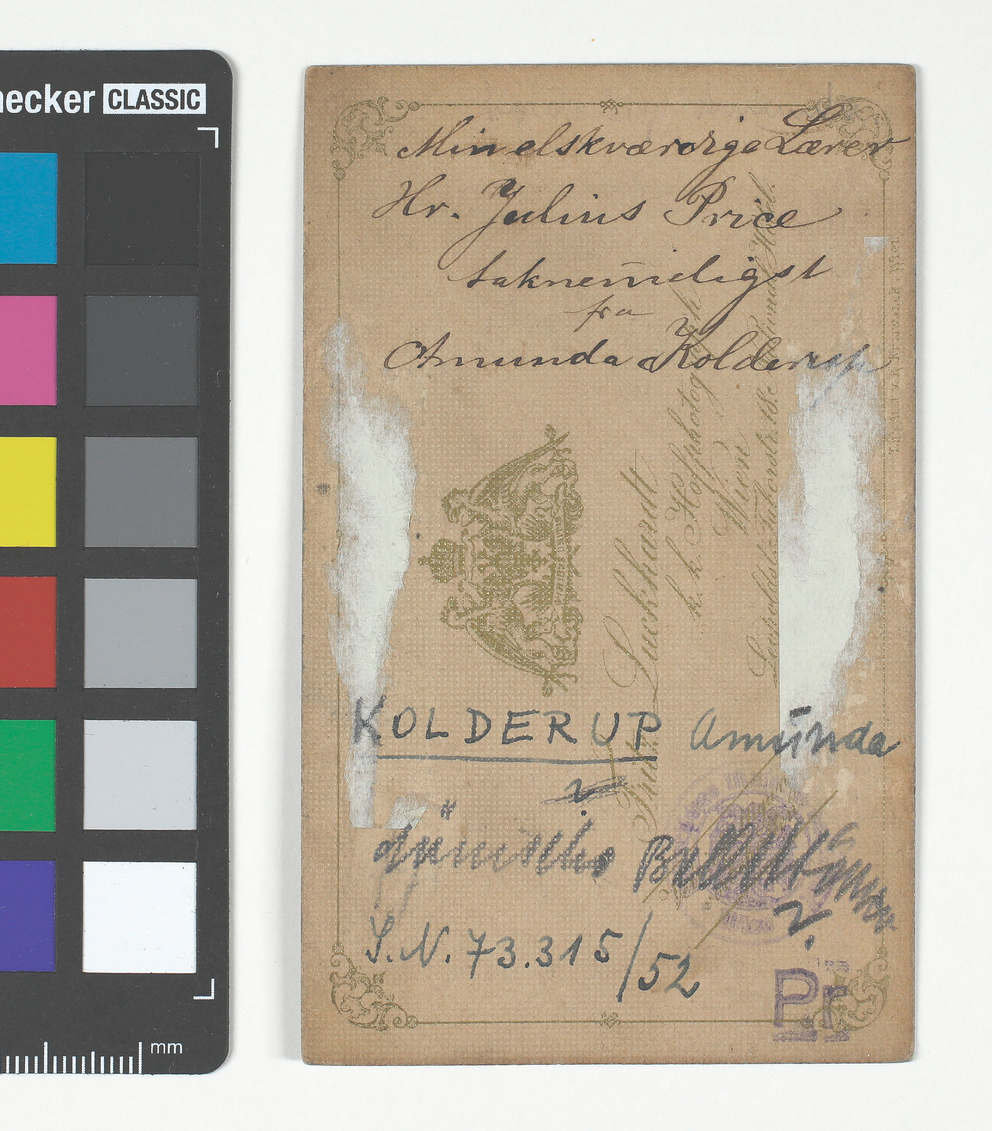 ecker CLASSIC
Min elskværdige Lærer
Hr. Julius Price
taknem̄eligst
fra
Amunda Kolderup
Luckhardt
k. k. Hofphotograph
Wien
KOLDERUP Amunda
?
dänische
?
S.N. 73.315/52
Pr
mm